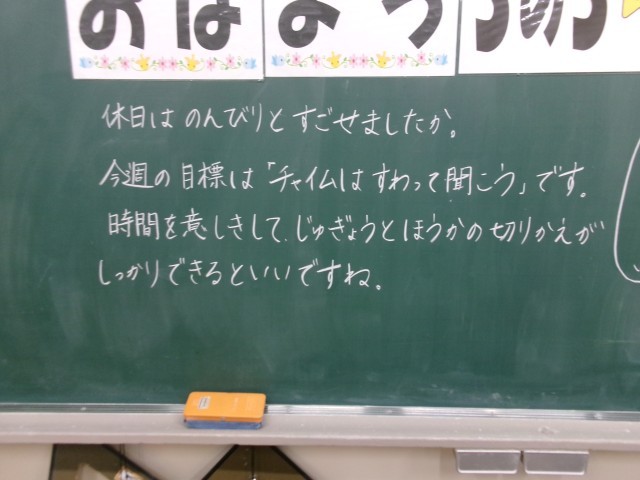 おはよう
休日は のんびりと すごせましたか。
今週の目標は「チャイムは すわって聞こう」です。
時間を意しきして、じゅぎょうとほうかの切りかえが
しっかりできるといいですね。